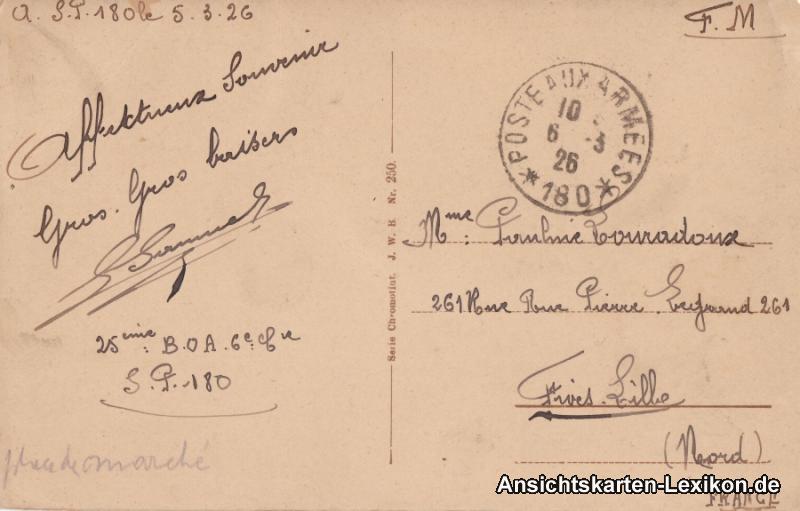 A. S.P. 180 le 5.3.26
F.M
Affectueux Souvenir
Gros. Gros baisers
25ème B.O.A. 6e Cie
S.P. 180
place de marché
Serie Chromotint. J. W. B. Nr. 250.
*POSTE AUX ARMEES*
10
6 -3
26
180
Mme: Pauline Touradoux
261 Rue Pierre Legrand 261
Fives. Lille
(Nord)
FRANCE
Ansichtskarten-Lexikon.de